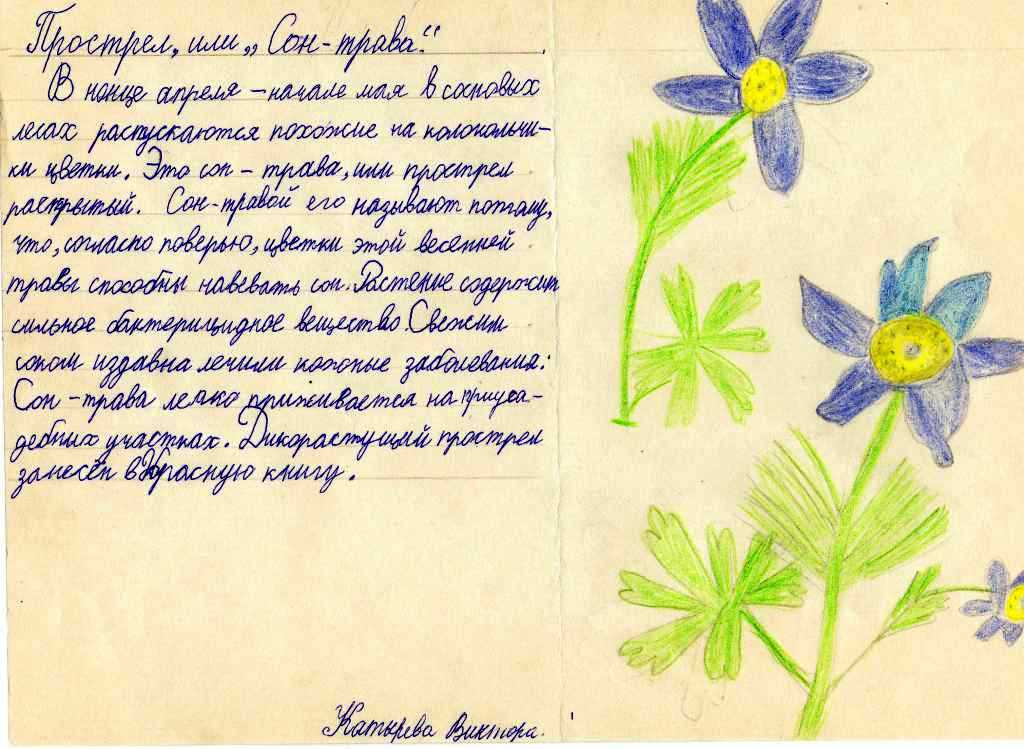 Прострел, или „Сон-трава“.
В конце апреля - начале мая в сосновых
лесах распускаются похожие на колокольчи-
ки цветки. Это сон - трава, или прострел
раскрытый. Сон-травой его называют потому,
что, согласно поверью, цветки этой весенней
травы способны навевать сон. Растение содержит
сильное бактерицидное вещество. Свежим
соком издавна лечили кожные заболевания.
Сон - трава легко приживается на приуса-
дебных участках. Дикорастущий прострел
занесён в Красную книгу.
Катырева Виктора.